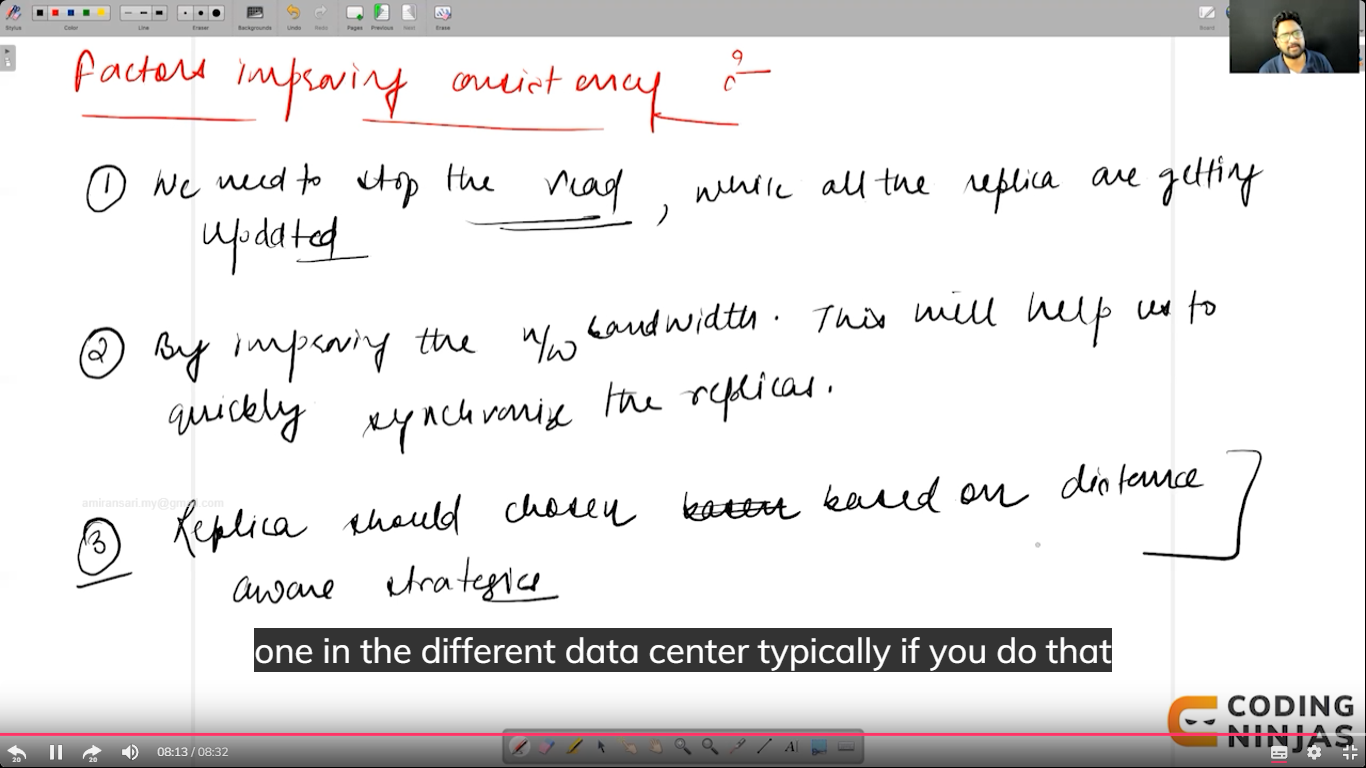 Stylus
Color
Line
Eraser
Backgrounds
Undo
Redo
Pages
Previous
Next
Erase
Board
Factors improving consistency :-
① We need to stop the read, while all the replica are getting
updated
② By improving the n/w bandwidth. This will help us to
quickly synchronise the replicas.
amiransari.my@gmail.com
③ Replica should chosen based on distance
aware strategies
one in the different data center typically if you do that
CODING
NINJAS
20
20
08:13 / 08:32